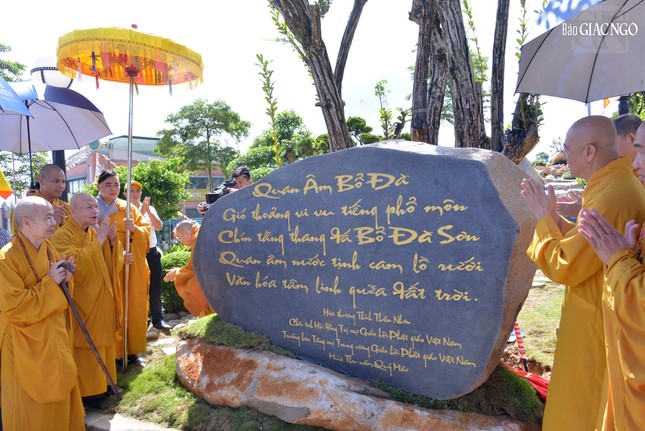 Báo GIÁC NGỘ
Quan Âm Bổ Đà
Gió thoảng vi vu tiếng phổ môn
Chín tầng thang đá Bổ Đà Sơn
Quan âm nước tịnh cam lồ rưới
Văn hóa tâm linh quữa đất trời.
Hòa thượng Thích Thiện Nhơn
Chủ tịch Hội đồng Trị sự Giáo hội Phật giáo Việt Nam
Trưởng ban Tăng sự Trung ương Giáo hội Phật giáo Việt Nam
Mùa Thu năm Quý Mão